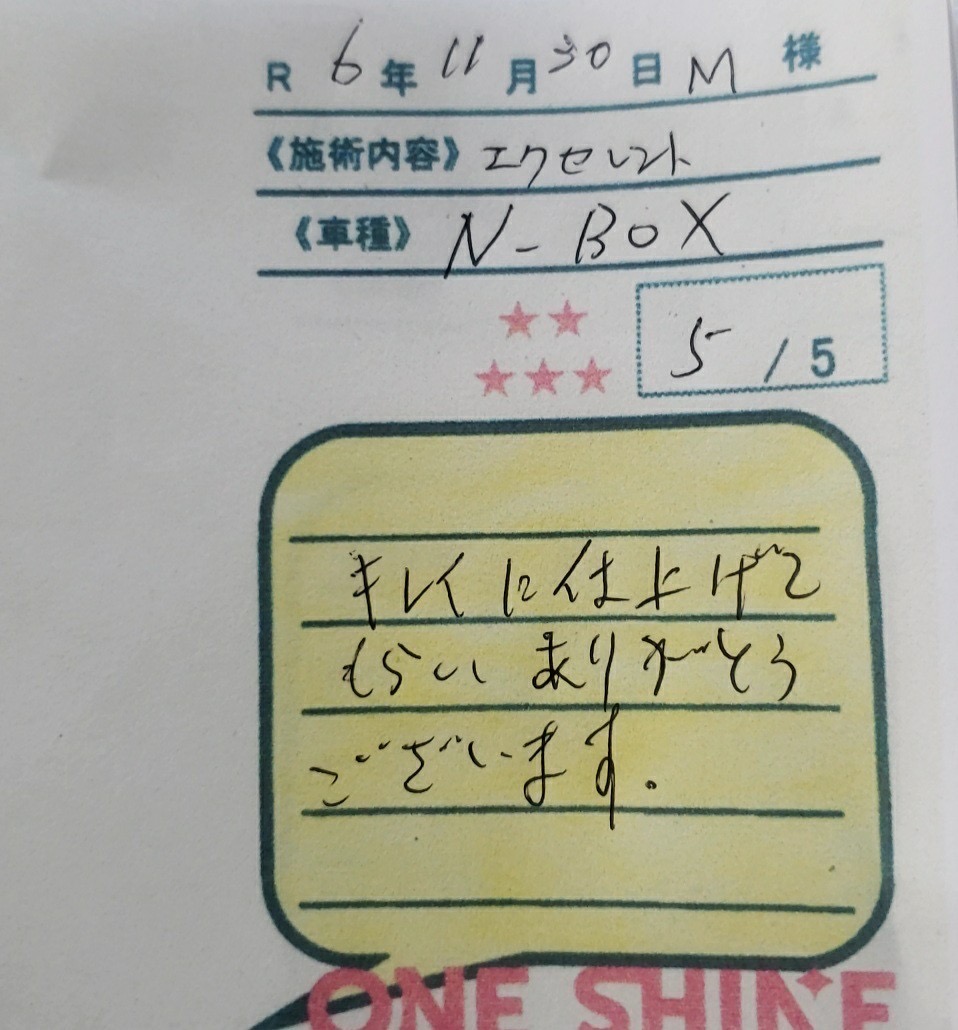 R 6年 11月30日 M 様
《施術内容》エクセレント
《車種》N-BOX
★★
★★★
5 / 5
キレイに仕上げて
もらい ありがとう
ございます。
ONE SHINE